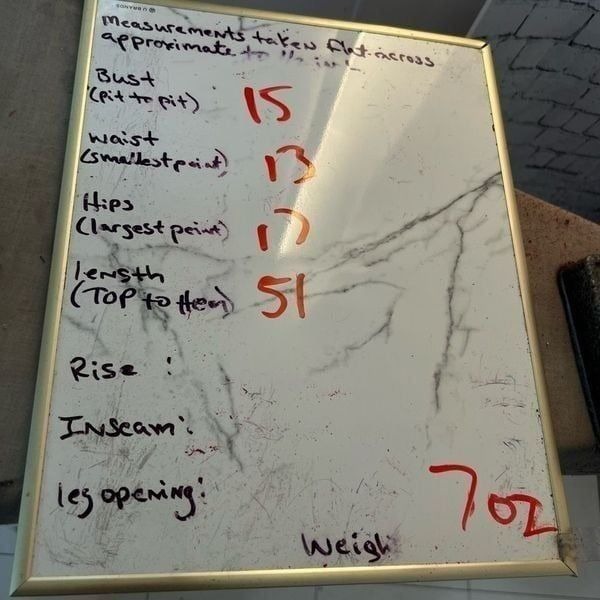 U BRANDS
Measurements taken flat across
approximate to
Bust
(pit to pit) 15
waist
(smallest point) 13
Hips
(largest point) 17
length
(TOP to Hem) 51
Rise :
Inseam :
leg opening :
7 oz
Weigh